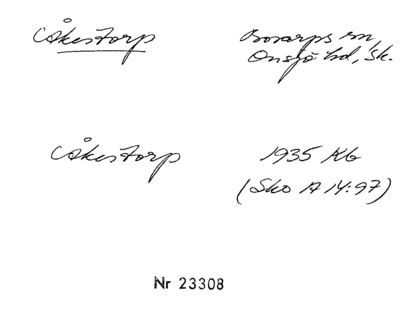 Åkestorp
Bosarps sn,
Onsjö hd, Sk.
Åkestorp
1935 Kb
(Sko A 14:97)
Nr 23308